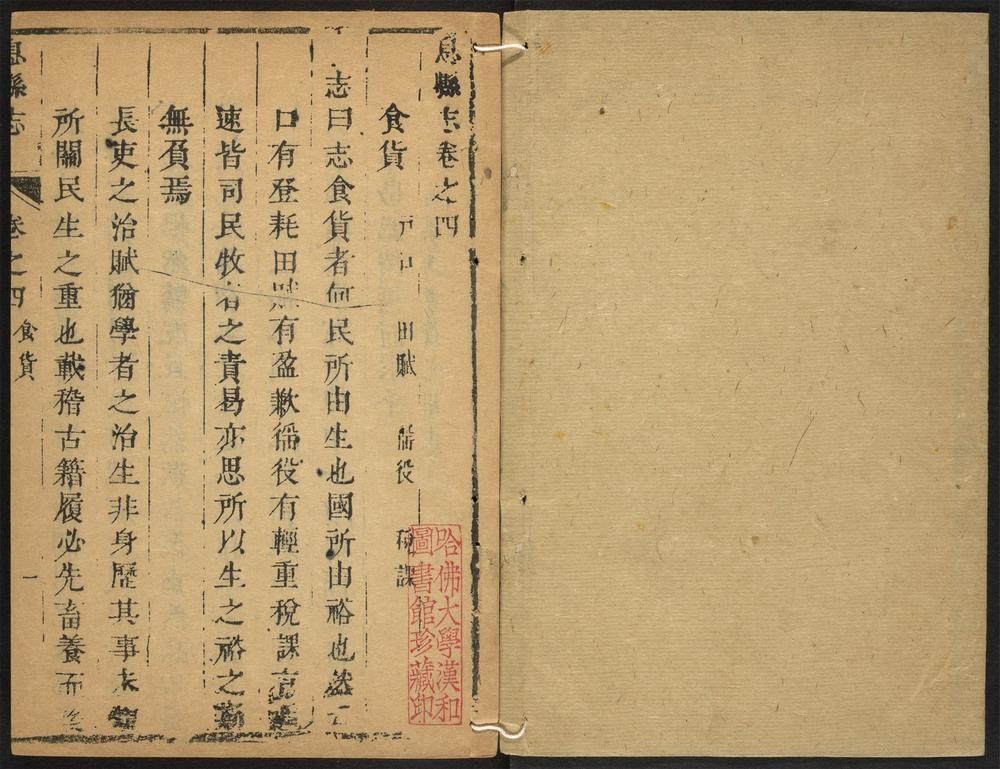 息縣志卷之四
食貨 戶口 田賦 徭役 稅課
志曰志食貨者何民所由生也國所由裕也然
口有登耗田賦有盈歉徭役有輕重稅課
速皆司民牧者之責曷亦思所以生之裕之
無負焉
長吏之治賦猶學者之治生非身歷其事未
所關民生之重也載稽古籍履必先畜養而
息縣志 卷之四 食貨 一
哈佛大學漢和
圖書館珍藏印